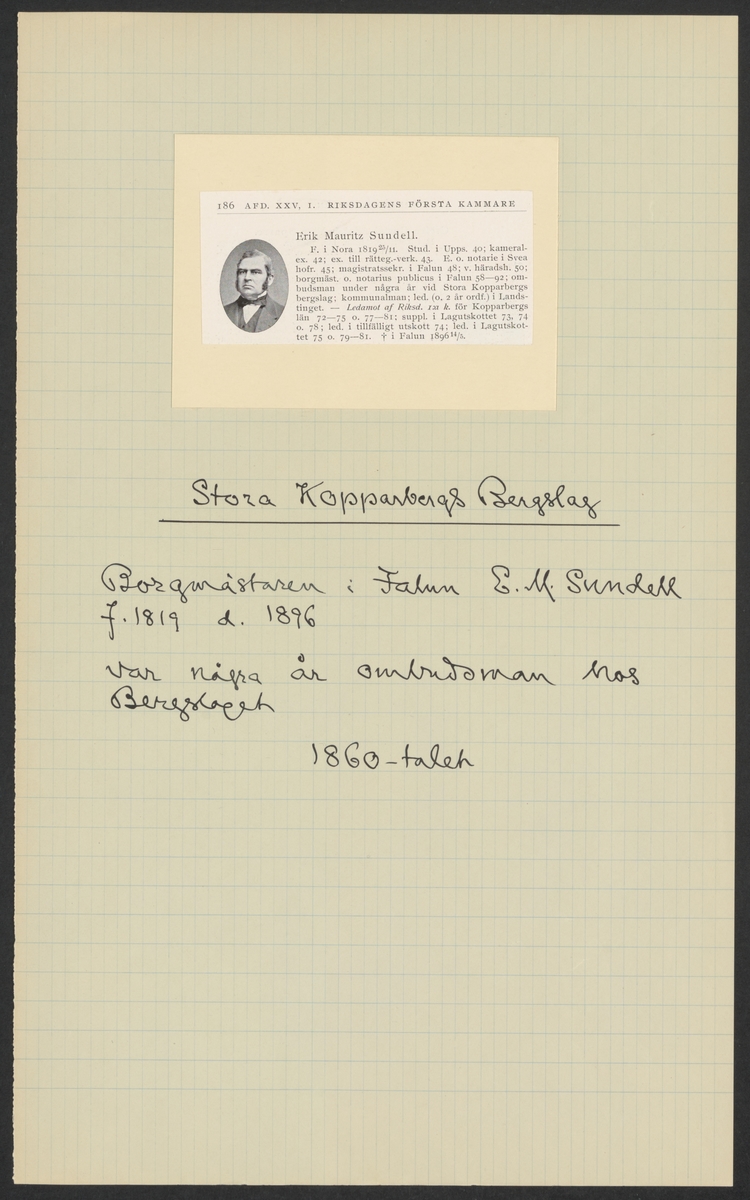 186 AFD. XXV, I. RIKSDAGENS FÖRSTA KAMMARE
Erik Mauritz Sundell.
F. i Nora 1819 25/11. Stud. i Upps. 40; kameral-
ex. 42; ex. till rätteg.-verk. 43. E. o. notarie i Svea
hofr. 45; magistratssekr. i Falun 48; v. häradsh. 50;
borgmäst. o. notarius publicus i Falun 58—92; om-
budsman under några år vid Stora Kopparbergs
bergslag; kommunalman; led. (o, 2 år ordf.) i Lands-
tinget. — Ledamot af Riksd. 1:a k. för Kopparbergs
län 72—75 o. 77—81; suppl. i Lagutskottet 73, 74
o. 78; led. i tillfälligt utskott 74; led. i Lagutskot-
tet 75 o. 79—81. † i Falun 1896 14/5.
Stora Kopparbergs Bergslag
Borgmästaren i Falun E. M. Sundell
f. 1819 d. 1896
var några år ombudsman hos
Bergslaget
1860-talet